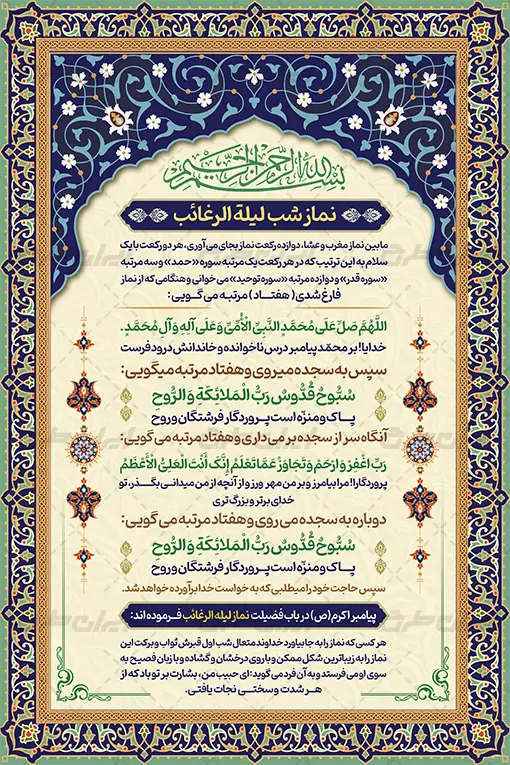 بسم الله الرحمن الرحیم
نماز شب لیلة الرغائب
ما بین نماز مغرب و عشا، دوازده رکعت نماز بجای می آوری، هر دو رکعت با یک
سلام به این ترتیب که در هر رکعت یک مرتبه سوره «حمد» و سه مرتبه
«سوره قدر» و دوازده مرتبه «سوره توحید» می خوانی و هنگامی که از نماز
فارغ شدی (هفتاد) مرتبه می گویی:
اللَّهُمَّ صَلِّ عَلَى مُحَمَّدٍ النَّبِيِّ الْأُمِّيِّ وَعَلَى آلِهِ وَآلِ مُحَمَّدٍ.
خدایا! بر محمّد پیامبر درس ناخوانده و خاندانش درود فرست
سپس به سجده میروی و هفتاد مرتبه میگویی:
سُبُّوحٌ قُدُّوسٌ رَبُّ الْمَلَائِكَةِ وَالرُّوحِ
پاک و منزّه است پروردگار فرشتگان و روح
آنگاه سر از سجده بر می داری و هفتاد مرتبه می گویی:
رَبِّ اغْفِرْ وَارْحَمْ وَتَجَاوَزْ عَمَّا تَعْلَمُ إِنَّكَ أَنْتَ الْعَلِيُّ الْأَعْظَمُ
پروردگارا! مرا بیامرز و بر من مهر ورز و از آنچه از من میدانی بگذر، تو
خدای برتر و بزرگ تری
دوباره به سجده می روی و هفتاد مرتبه می گویی:
سُبُّوحٌ قُدُّوسٌ رَبُّ الْمَلَائِكَةِ وَالرُّوحِ
پاک و منزّه است پروردگار فرشتگان و روح
سپس حاجت خود را میطلبی که به خواست خدا برآورده خواهد شد.
پیامبر اکرم (ص) در باب فضیلت نماز لیله الرغائب فرموده اند:
هر کسی که نماز را به جا بیاورد خداوند متعال شب اول قبرش ثواب و برکت این
نماز را به زیباترین شکل ممکن و با روی درخشان و گشاده و با زبان فصیح به
سوی او می فرستد و به آن فرد می گوید: ای حبیب من، بشارت بر تو باد که از
هر شدت و سختی نجات یافتی.